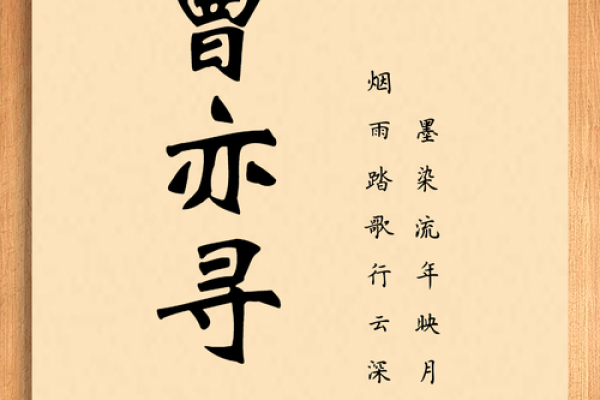 墨染流年映月
烟雨踏歌行云深
曾亦寻